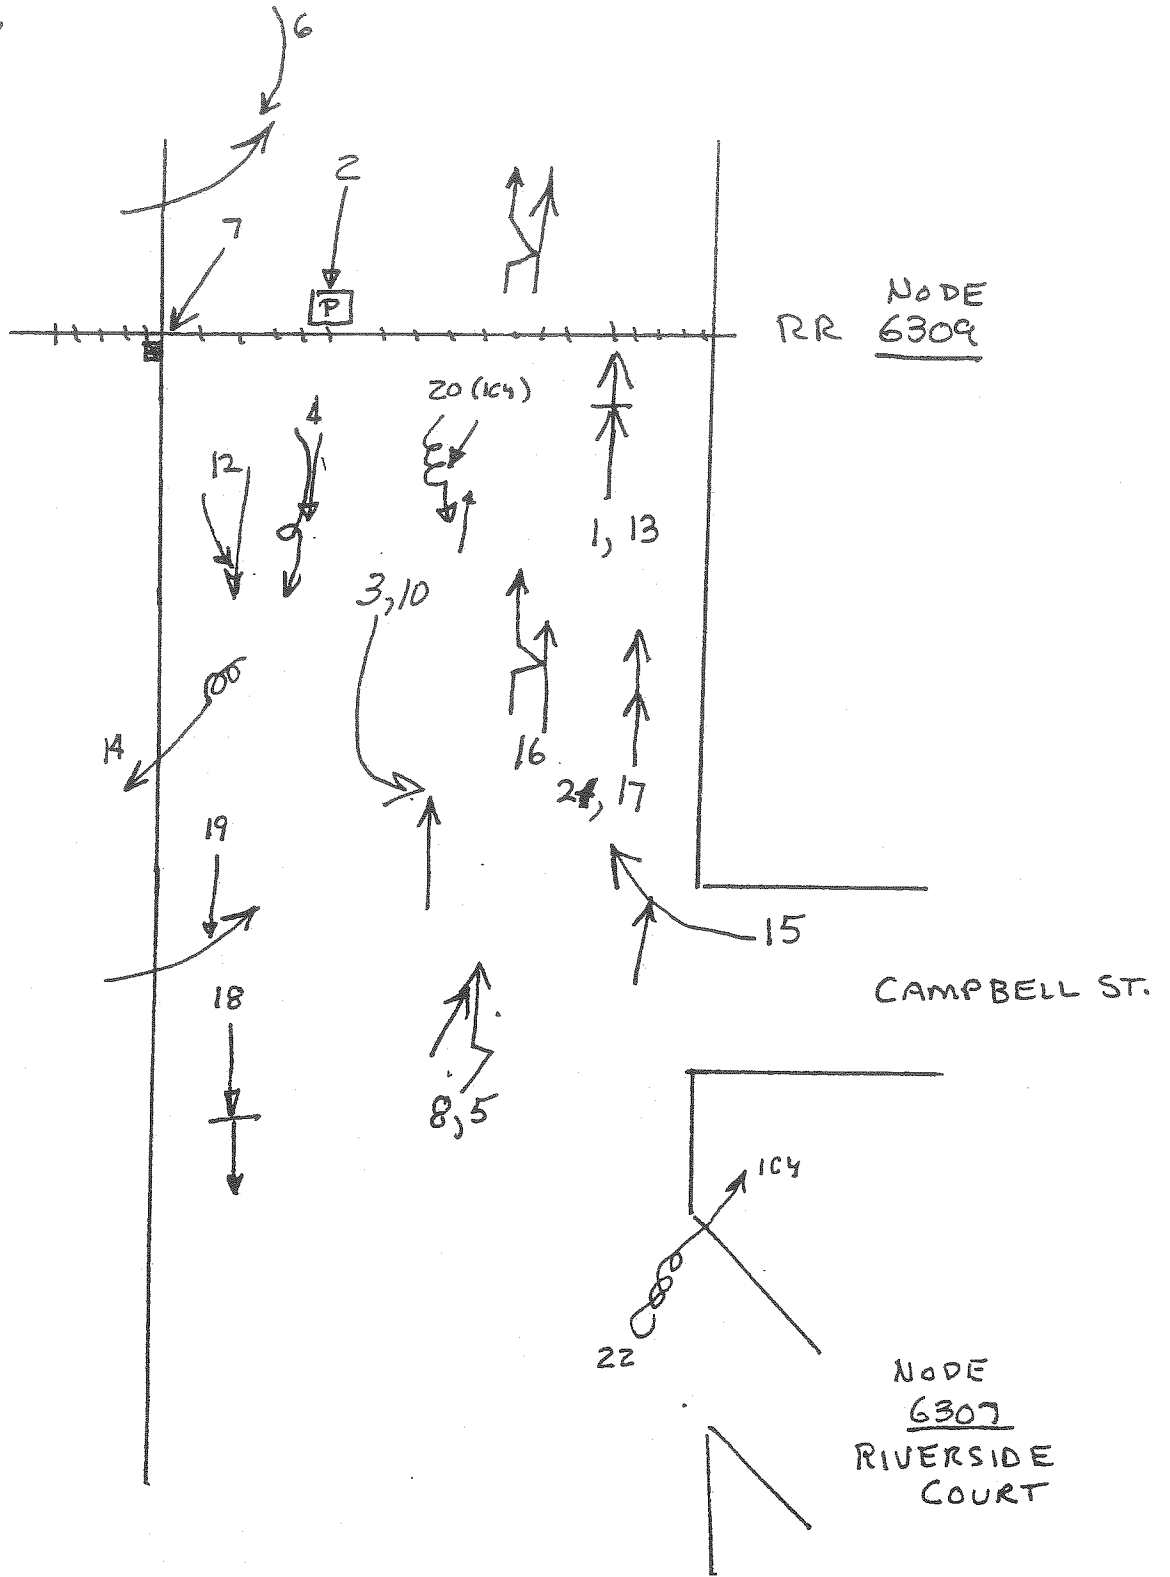 6
2
7
P
NODE
RR 6309
20 (1C4)
4
12
1, 13
3, 10
14
16
17
19
15
CAMPBELL ST.
18
8, 5
1C4
22
NODE
6307
RIVERSIDE
COURT